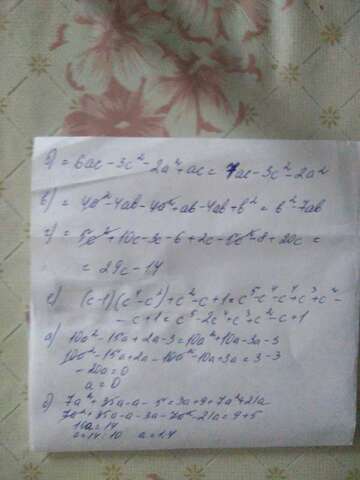 б) = 6ac - 3c² - 2a² + ac = 7ac - 3c² - 2a²
в) = 4a² - 4ab - 4a² + ab - 4ab + b² = b² - 7ab
г) = 5c² + 10c - 3c - 6 + 2c - 5c² - 8 + 20c =
= 29c - 14
е) (c-1)(c⁴-c²)+c²-c+1 = c⁵-c⁴-c⁴+c³+c²-
- c+1 = c⁵-2c⁴+c³+c²-c+1
а) 10a² - 15a + 2a - 3 = 10a² + 10a - 3a - 3
10a² - 15a + 2a - 10a² - 10a + 3a = 3 - 3
- 20a = 0
a = 0
б) 7a² + 35a - a - 5 = 3a + 9 + 7a² + 21a
7a² + 35a - a - 3a - 7a² - 21a = 9 + 5
10a = 14
a = 14 : 10 a = 1,4